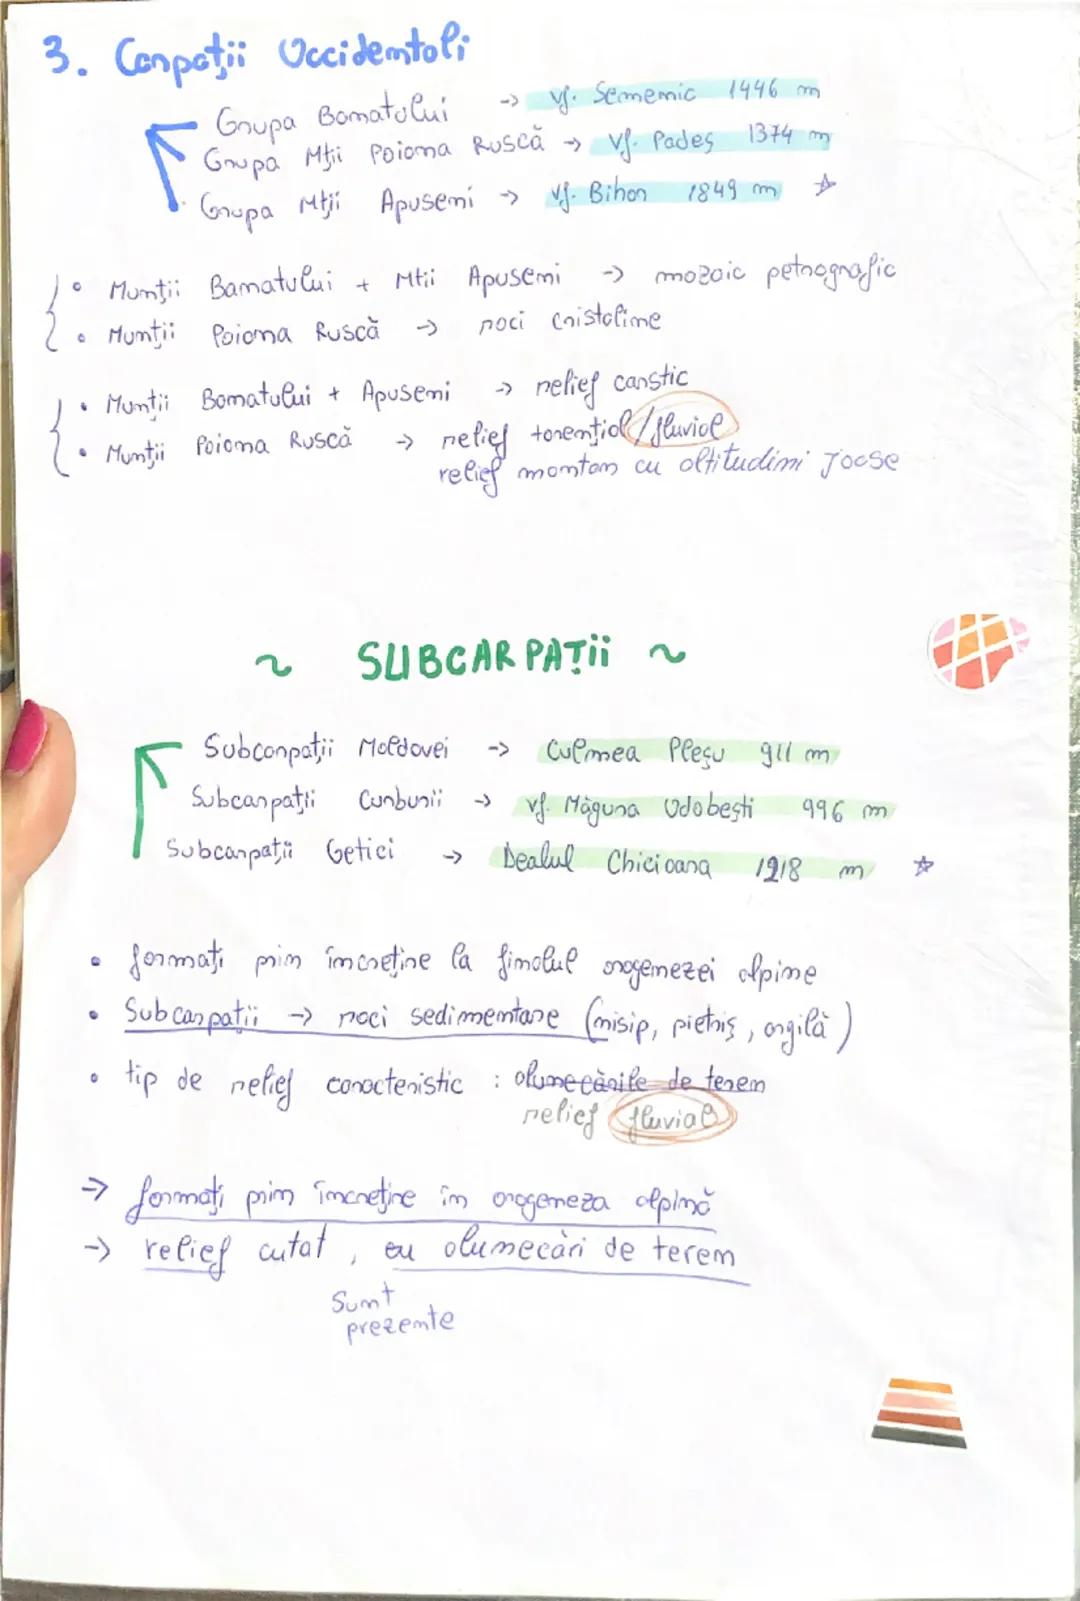 3. Carpații Occidentali
Grupa Banatului -> vf. Semenic 1446 m
Grupa Mții Poiana Ruscă -> vf. Padeș 1374 m
Grupa Mții Apuseni -> vf. Bihor 1849 m
• Munții Banatului + Mții Apuseni -> mozaic petrografic
• Munții Poiana Ruscă -> roci cristaline
• Munții Banatului + Apuseni -> relief carstic
• Munții Poiana Ruscă -> relief torențial/fluvial
relief montan cu altitudini joase
~ SUBCARPAȚII ~
Subcarpații Moldovei -> Culmea Pleșu 911 m
Subcarpații Curburii -> vf. Măgura Odobești 996 m
Subcarpații Getici -> Dealul Chiciora 1218 m
• formați prin încrețire la finalul orogenezei alpine
• Subcarpații -> roci sedimentare (nisip, pietriș, argilă)
• tip de relief caracteristic : alunecările de teren
relief fluvial
-> formați prin încrețire în orogeneza alpină
-> relief cutat, cu alunecări de teren
sunt
prezente